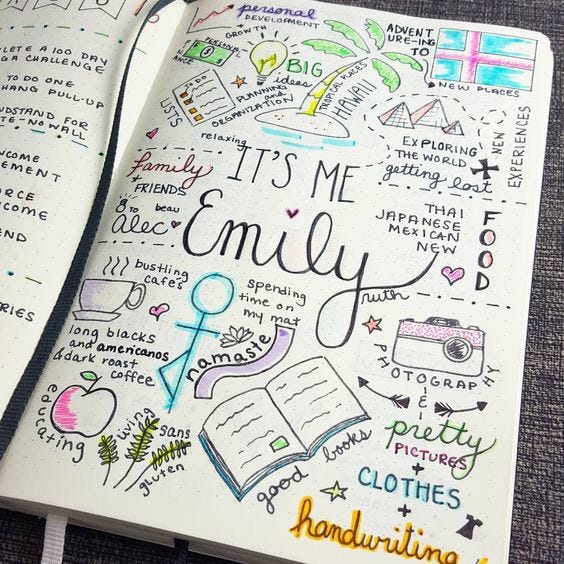 personal
DEVELOPMENT
+
GROWTH
PERSONAL
ANCE
BIG
ideas
LISTS
PLANNING
and
ORGANIZATION
TROPICAL PLACES
HAWAII
relaxing
ADVENT
URE-ING
TO
NEW PLACES
EXPLORING
THE WORLD
getting lost
NEW
EXPERIENCES
family
+
FRIENDS
beau
alec
IT'S ME
Emily
ruth
THAI
JAPANESE
MEXICAN
NEW
FOOD
bustling
cafes
long blacks
and americanos
& dark roast
coffee
spending
time on
my mat
namaste
educating
living
sans
gluten
good books
PHOTOGRAPHY
pretty
PICTURES
+
CLOTHES
+
handwriting
LETE A 100 DAY
GA CHALLENGE
TO DO ONE
HANG PULL-UP
NDSTAND FOR
TE - NO WALL
NCOME
EMENT
ORCE
NCOME
END
RIES